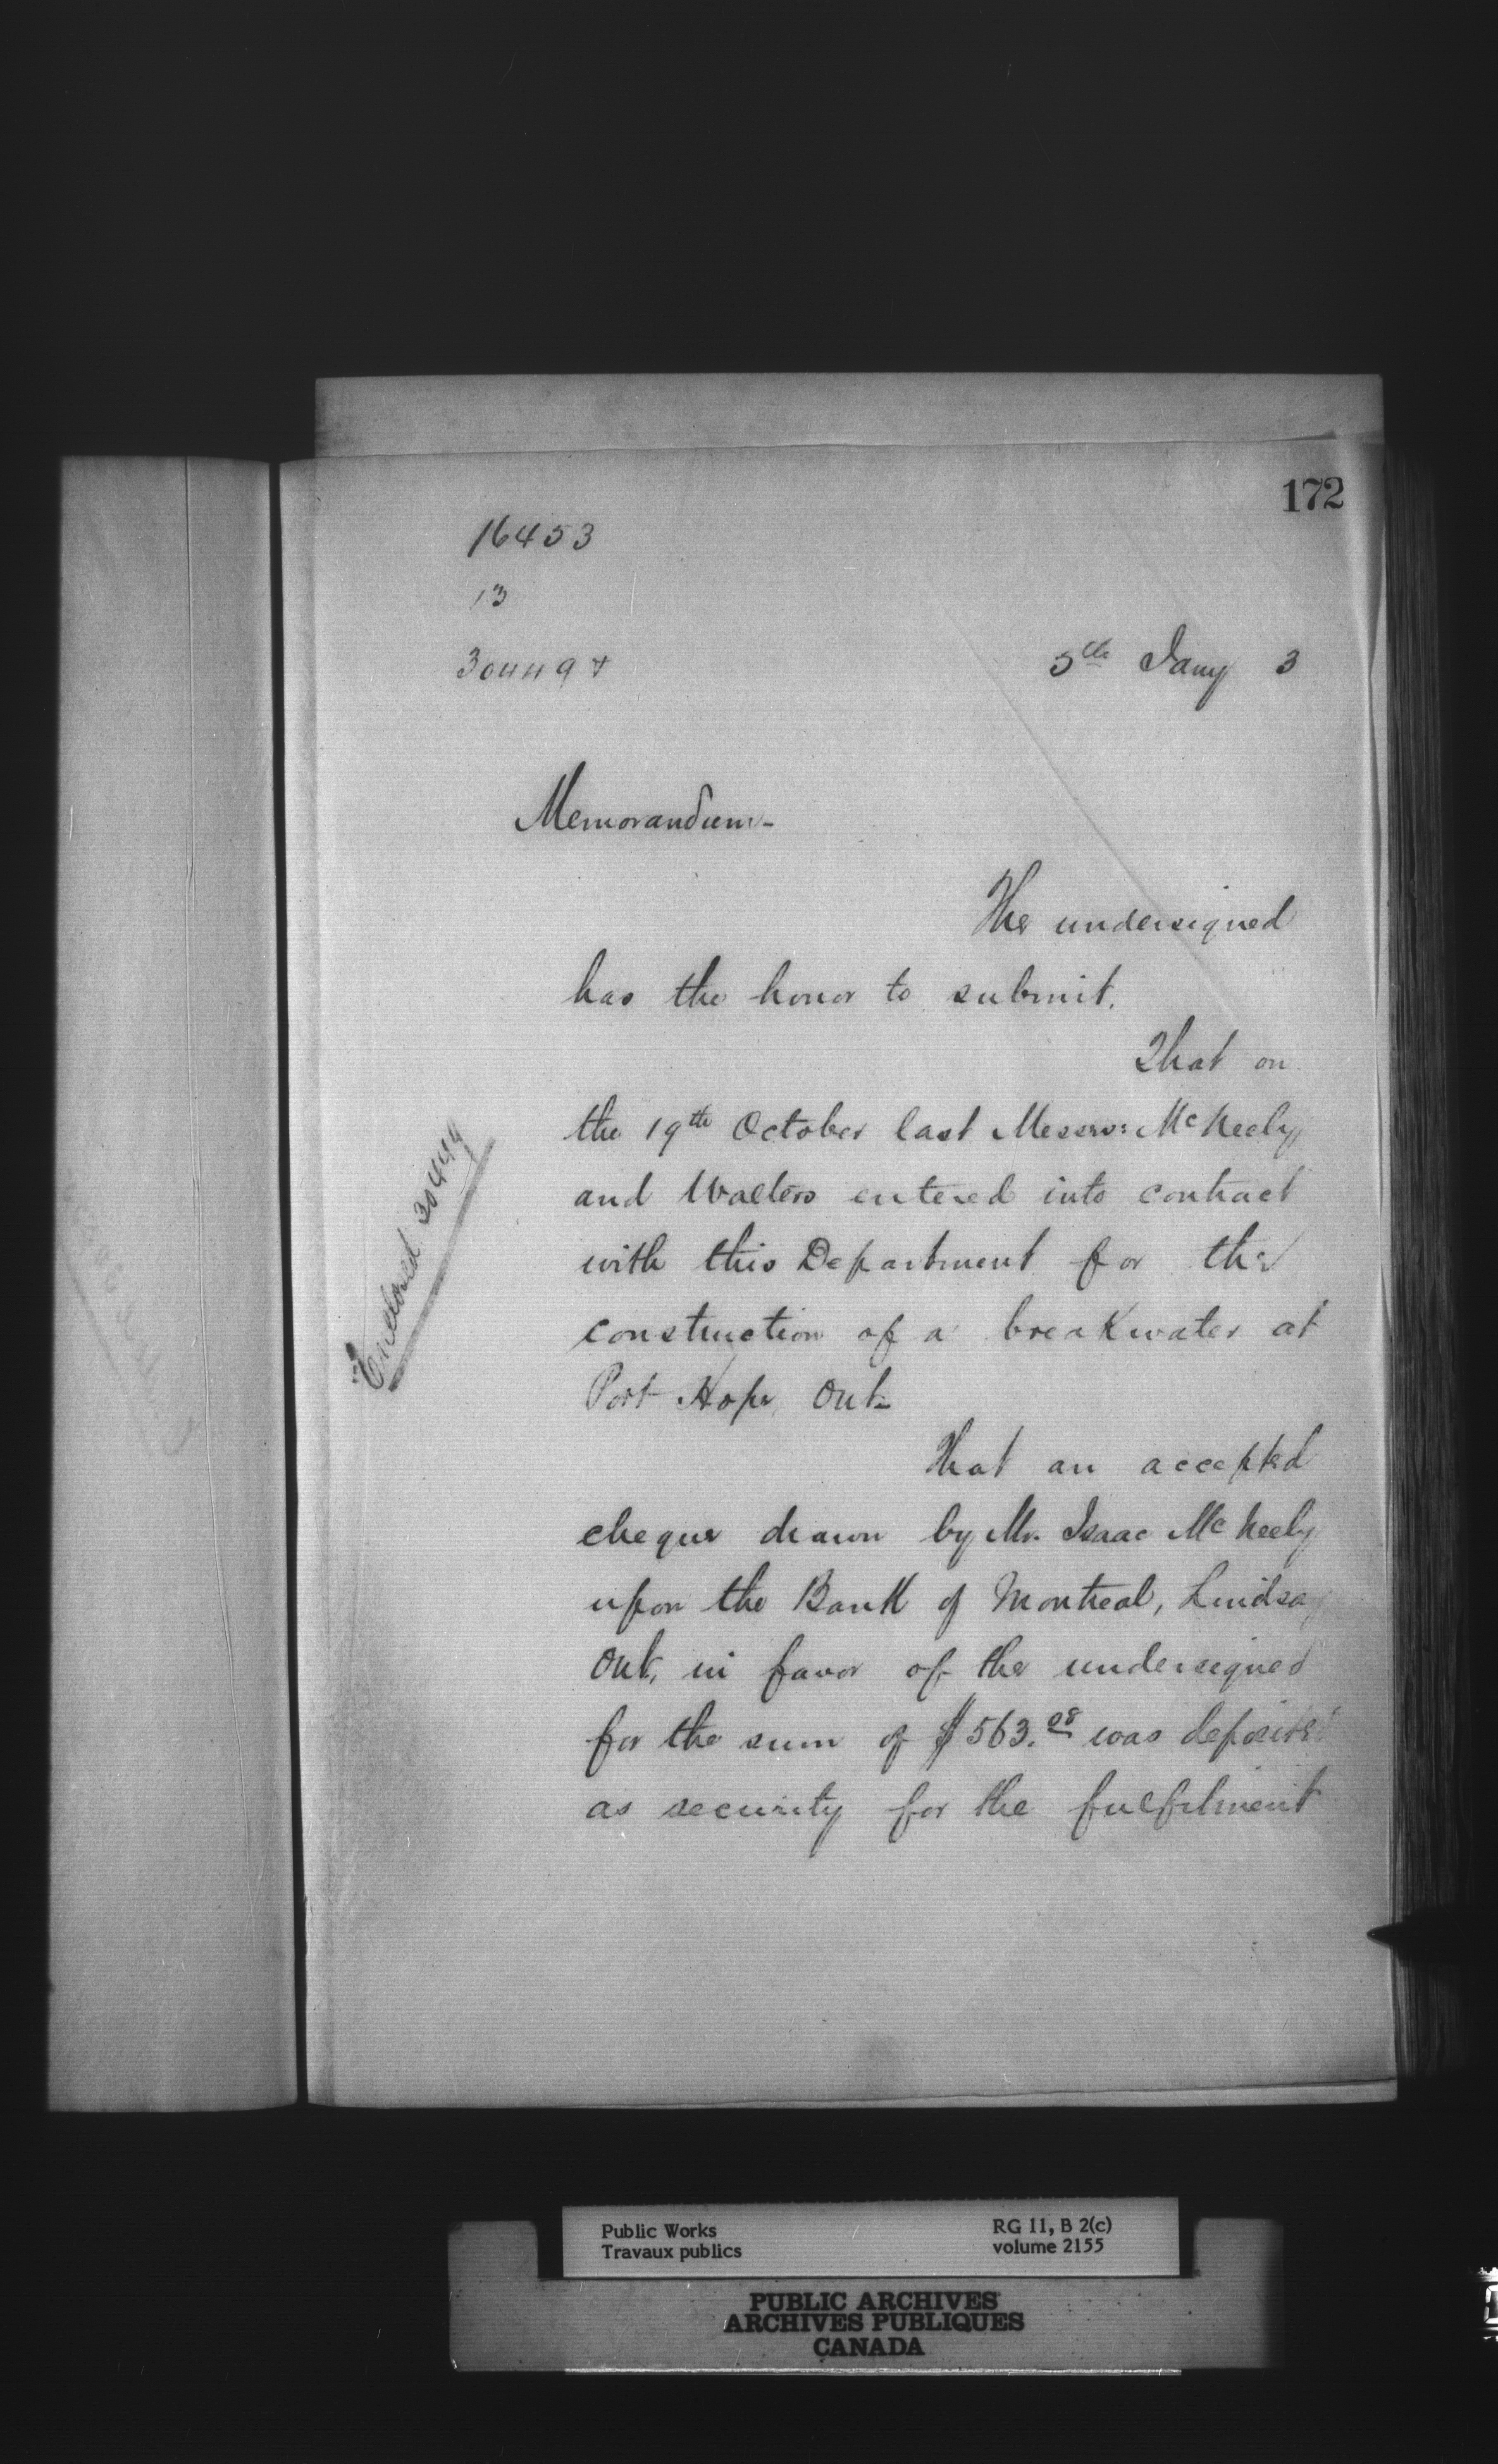 172
16453
13
30449 +
5th Jany 3
Memorandum-
The undersigned
has the honor to submit.
That on
the 19th October last Messrs: McNeely
and Walters entered into contract
with this Department for the
construction of a breakwater at
Port Hope, Ont-
That an accepted
cheque drawn by Mr. Isaac McNeely
upon the Bank of Montreal, Lindsay
Ont, in favor of the undersigned
for the sum of $563.08 was deposited
as security for the fulfilment
Enclosed 30449
Public Works
Travaux publics
RG 11, B 2(c)
volume 2155
PUBLIC ARCHIVES
ARCHIVES PUBLIQUES
CANADA